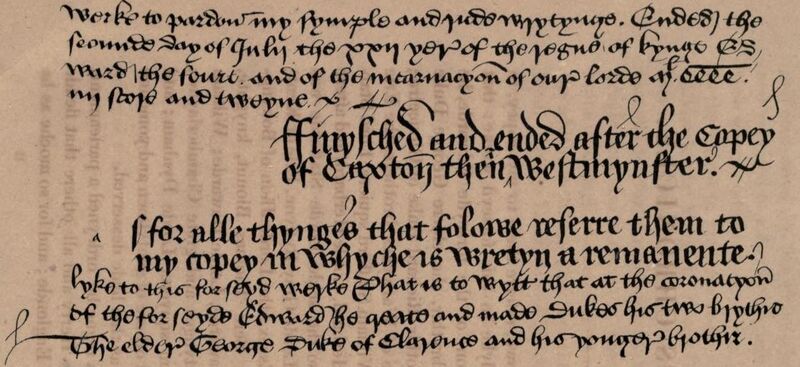 werke to pardon my symple and rude wrytynge. Ended the
secunde day of Julii the xxii yer of the regne of kynge Ed
ward the fourt. and of the incarnacyon of our lorde M. cccc.
iiii score and tweyne.
ffinysched and ended after the Copey
of Caxton then in Westmynster.
As for alle thynges that folowe referre them to
my copey in whyche is wretyn a remanente
lyke to this for seyd werke That is to wytt that at the coronacyon
of the for seyde Edward he create and made dukes his two brythir
The elder George Duke of Clarence and his yonger brothir.